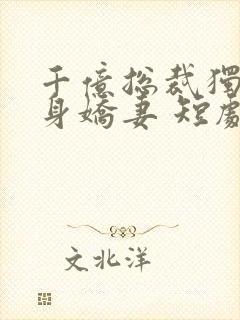 千億總裁獨
身嬌妻 短劇
文北洋